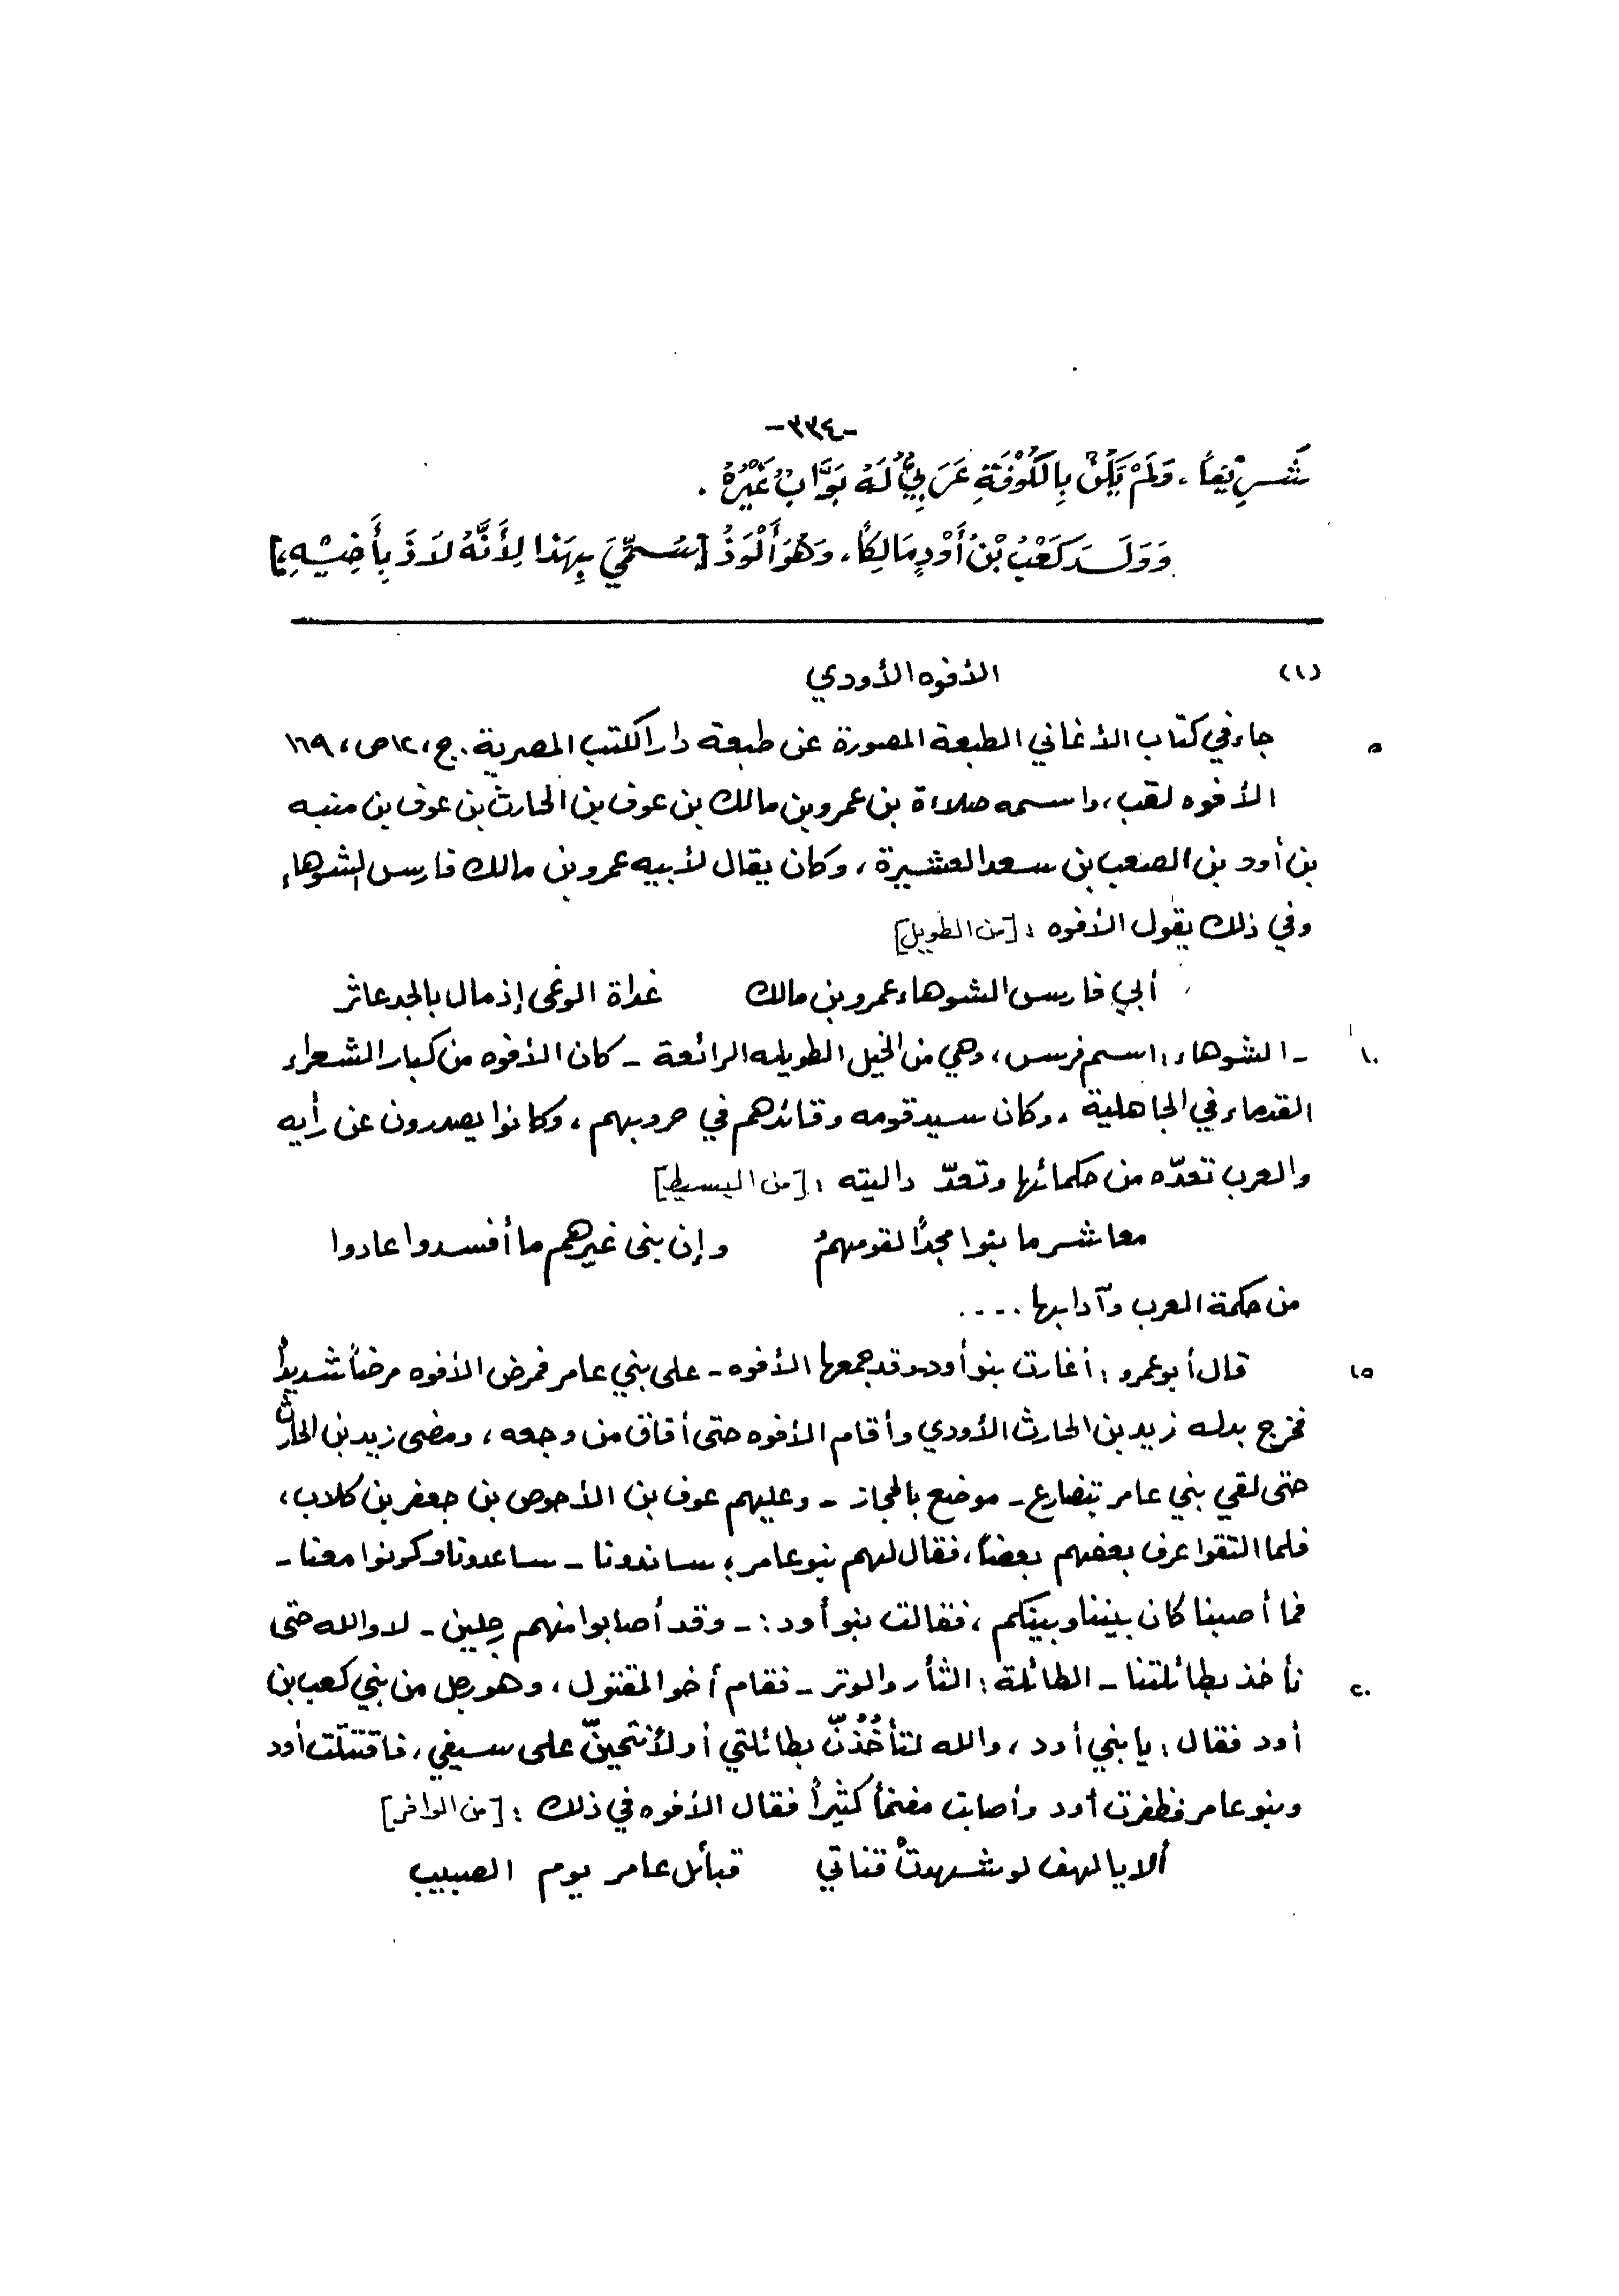 -٣٣٤-
شَرِيْفاً، وَلَمْ يَكُنْ بِالكُوْفَةِ عَرَبِيٌّ لَهُ بَوَّابٌ غَيْرُهُ .
وَوَلَدَ كَعْبُ بْنُ أَوْدٍ مَالِكاً، وَهُوَ أَلْوَذُ [سُمِّيَ بِهَذا لِأَنَّهُ لاَذَ بِأَخِيْهِ،]
(١) الأفوه الأودي
٥ جاء في كتاب الأغاني الطبعة المصورة عن طبعة دار الكتب المصرية. ج، ١٢ ص، ١٦٩
الأفوه لقب، واسمه صلاءة بن عمرو بن مالك بن عوف بن الحارث بن عوف بن منبه
بن أود بن الصعب بن سعد العشيرة، وكان يقال لأبيه عمرو بن مالك فارس الشوهاء
وفي ذلك يقول الأفوه : [من الطويل]
أبي فارس الشوهاء عمرو بن مالك غداة الوغى إذ مال بالجد عاثر
١٠ ـ الشوهاء: اسم فرس، وهي من الخيل الطويله الرائعة ـ كان الأفوه من كبار الشعراء
القدماء في الجاهلية، وكان سيد قومه وقائدهم في حروبهم، وكانوا يصدرون عن رأيه
والعرب تعدّه من حكمائها وتعدّ داليته : [من البسيط]
معاشر ما بنوا مجدًا لقومهمُ وإن بنى غيرهم ما أفسدوا عادوا
من حكمة العرب وآدابها ....
١٥ قال أبو عمرو : أغارت بنو أود ـ وقد جمعها الأفوه ـ على بني عامر فمرض الأفوه مرضاً شديداً
فخرج بدله زيد بن الحارث الأودي وأقام الأفوه حتى أفاق من وجعه، ومضى زيد بن الحارث
حتى لقي بني عامر بتضارع ـ موضع بالحجاز ـ وعليهم عوف بن الأحوص بن جعفر بن كلاب،
فلما التقوا عرف بعضهم بعضاً، فقال لهم بنو عامر : ساندونا ـ ساعدونا وكونوا معنا ـ
فما أصبنا كان بيننا وبينكم، فقالت بنو أود : ـ وقد أصابوا منهم رجلين ـ لا والله حتى
٢٠ نأخذ بطائلتنا ـ الطائلة : الثأر والوتر ـ فقام أخو المقتول، وهو رجل من بني كعب بن
أود فقال : يا بني أود، والله لتأخُذُنّ بطائلتي أو لأنتحينّ على سيفي، فاقتتلت أود
وبنو عامر فظفرت أود وأصابت مغنماً كثيراً فقال الأفوه في ذلك : [من الوافر]
ألا يا لهف لو شهدتْ قناتي قبائل عامر يوم الصبيب